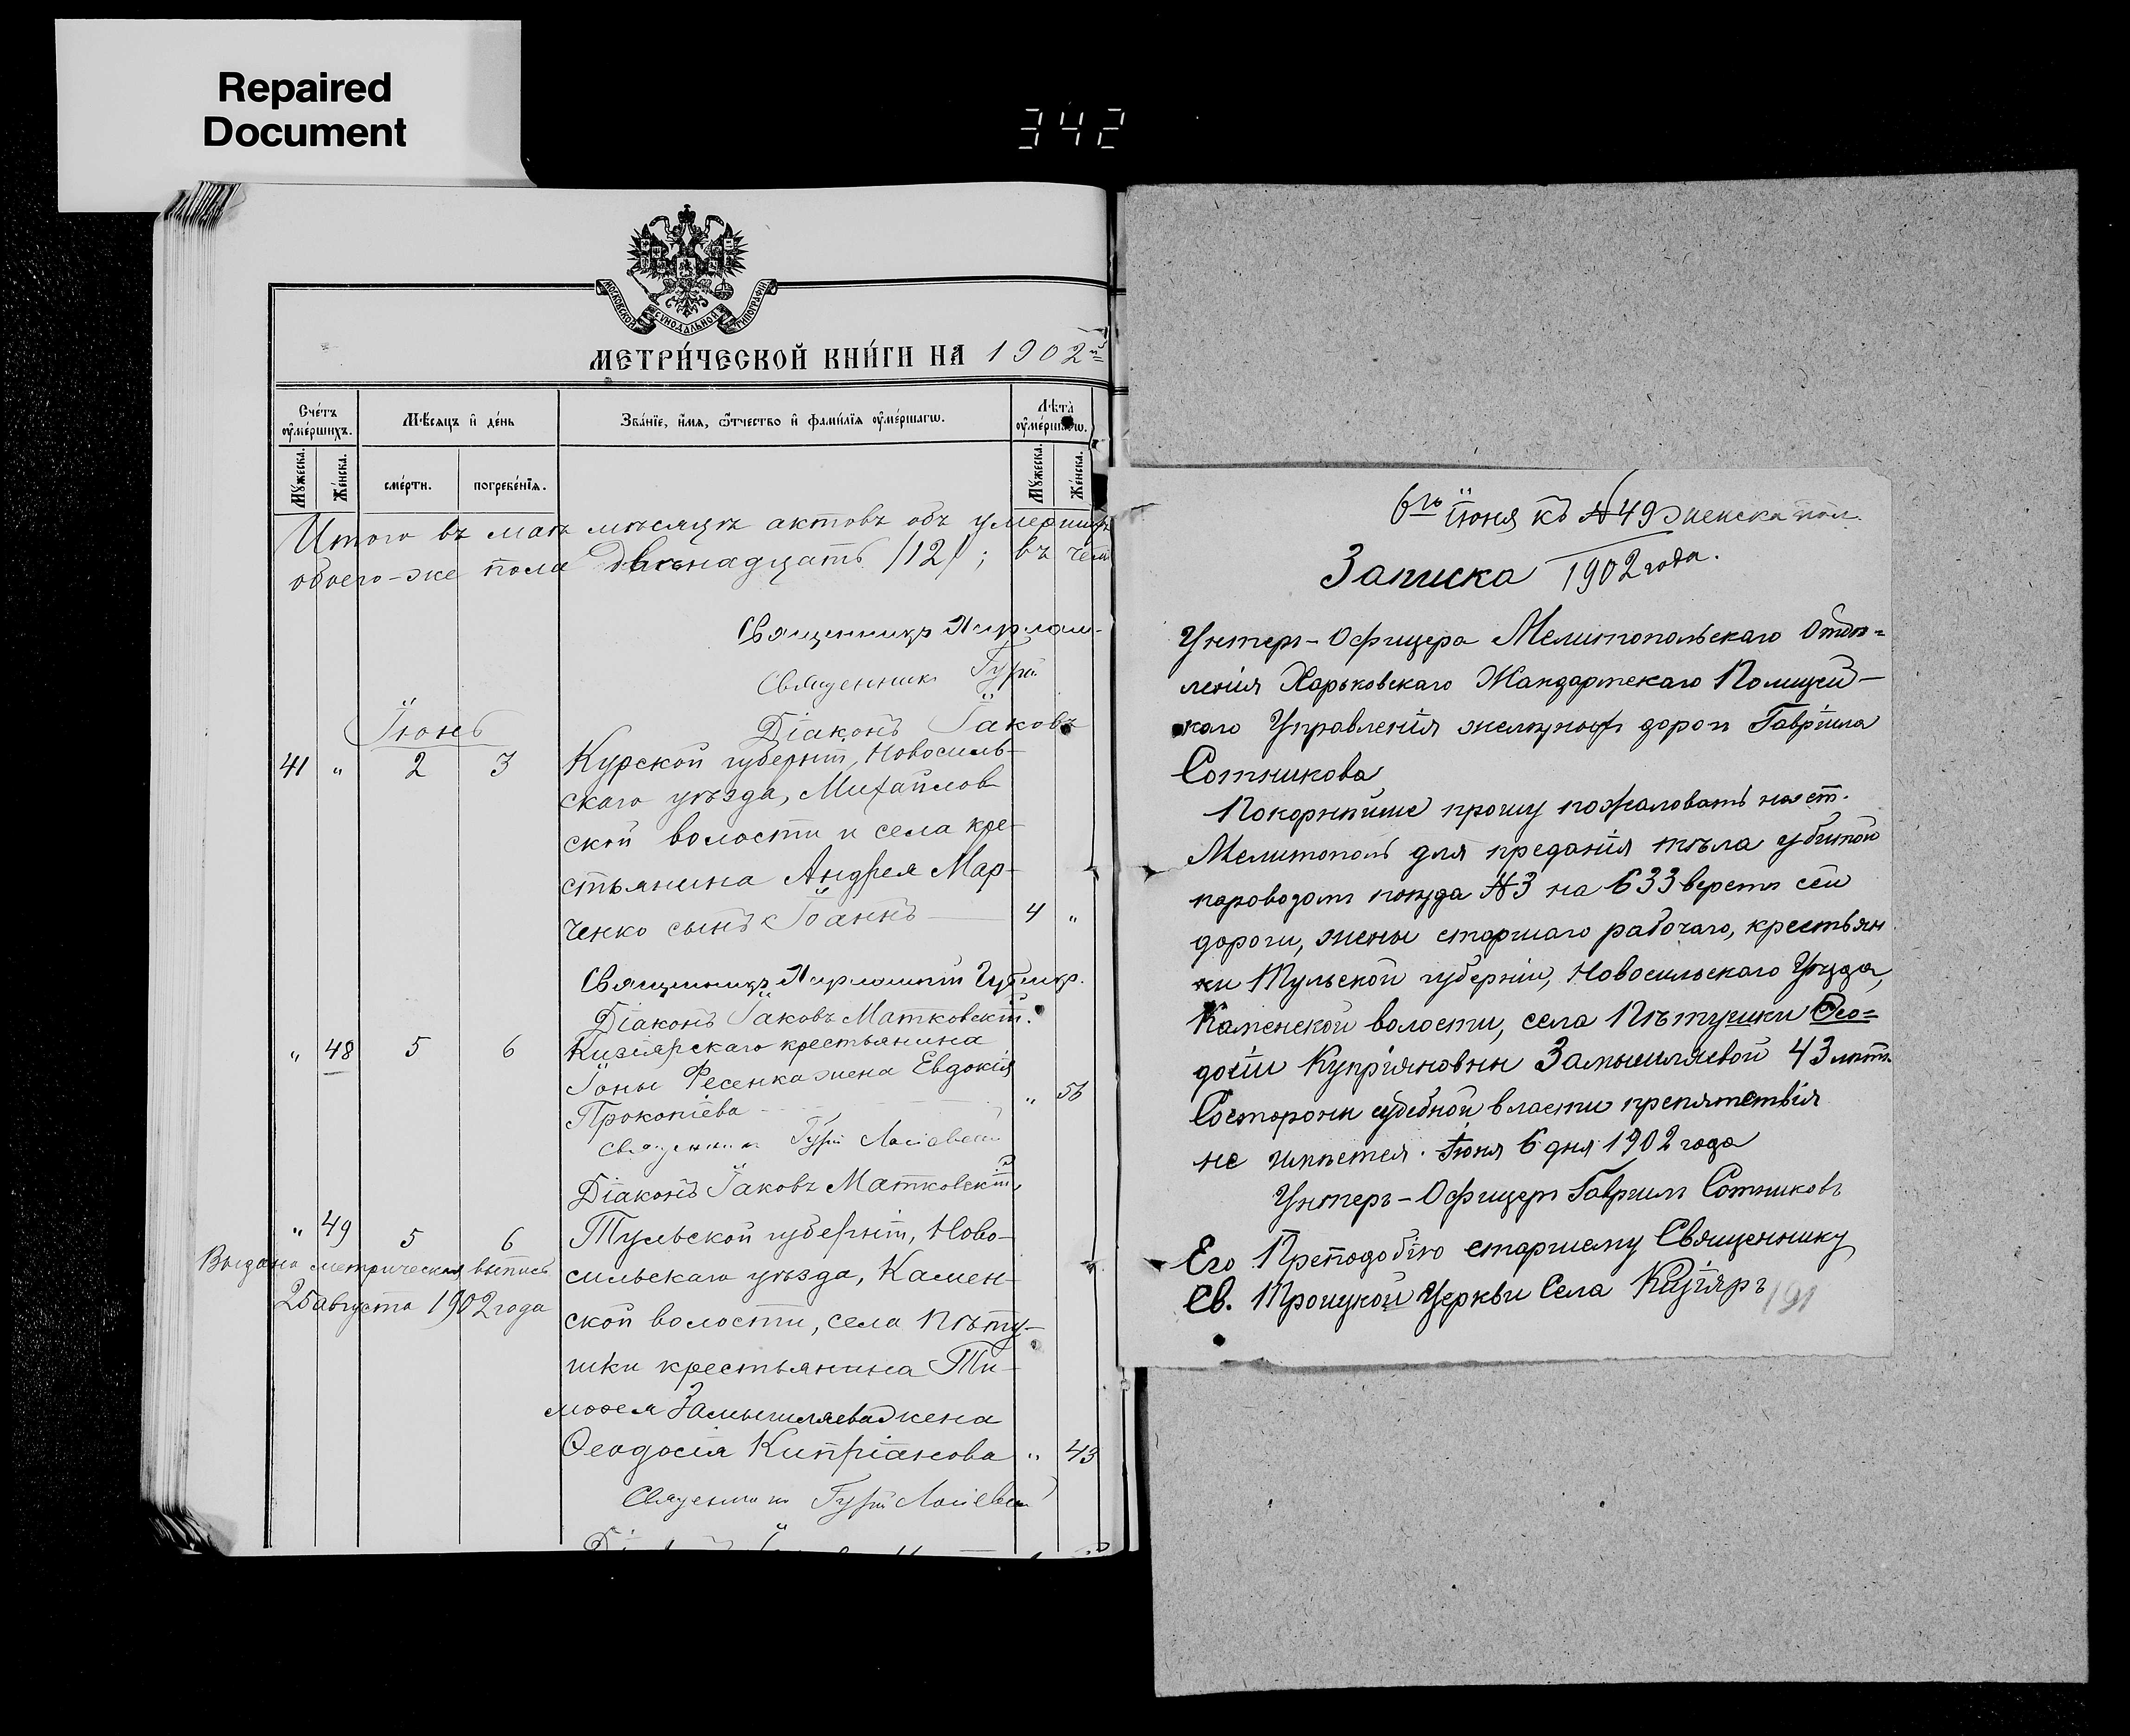 Repaired
Document
342
МОСКОВСКОЙ СѴНОДАЛЬНОЙ ТИПОГРАФІИ
МЕТРИ́ЧЕСКОЙ КНИ́ГИ НА 1902й
Сче́тъ ᲂу҆ме́ршихъ.
Мѣ́сяцъ и҆ де́нь
Зва́нїе, и҆́мѧ, ѻ҆́тчество и҆ фамилїѧ ᲂу҆ме́ршагѡ.
Лѣ́та ᲂу҆ме́ршагѡ.
Мꙋ́жеска. Же́нска. сме́рти. погребе́нїѧ. Мꙋ́жеска. Же́нска.
Итого въ маѣ мѣсяцѣ актовъ объ умершихъ
обоего-же пола двѣнадцать /12/; въ чем
Священникъ Харлам-
Священникъ Гурій
Діаконъ Іаковъ
Іюнь
41 " 2 3 Курской губерніи, Новосиль-
скаго уѣзда, Михайлов-
ской волости и села кре-
стьянина Андрея Мар-
ченко сынъ Іоаннъ 4 "
Священникъ Харлампій
Діаконъ Іаковъ Матковскій.
" 48 5 6 Кизіярскаго крестьянина
Іоны Фесенка жена Евдокія
Прокопіева " 56
Священникъ Гурій
Діаконъ Іаковъ Матковскій
" 49 5 6 Тульской губерніи, Ново-
Выдана метрическая выпись
сильскаго уѣзда, Камен-
25 августа 1902 года
ской волости, села Пѣту-
шки крестьянина Ти-
мофея Замышляева жена
Ѳеодосія Кипріанова " 43
Священникъ Гурій
6го іюня къ № 49 женска пол.
Записка 1902 года.
Унтеръ-Офицера Мелитопольскаго Отдѣ=
ленія Харьковскаго Жандармскаго Полицей-
скаго Управленія желѣзныхъ дорогъ Гавріила
Сотникова
Покорнѣйше прошу пожаловать на ст.
Мелитополь для преданія тѣла убитой
паровозомъ поѣзда № 3 на 633 верстѣ сей
дороги, жены старшаго рабочаго, крестьян
ки Тульской губерніи, Новосильскаго Уѣзда,
Каменской волости, села Пѣтушки Ѳео=
досіи Купріяновны Замышляевой 43 лѣтъ.
Состороны судебной власти препятствія
не имѣется. Іюня 6 дня 1902 года
Унтеръ-Офицеръ Гавріилъ Сотниковъ
Его Преподобію старшему Священнику
Св. Троицкой Церкви Села Кизіяръ
191